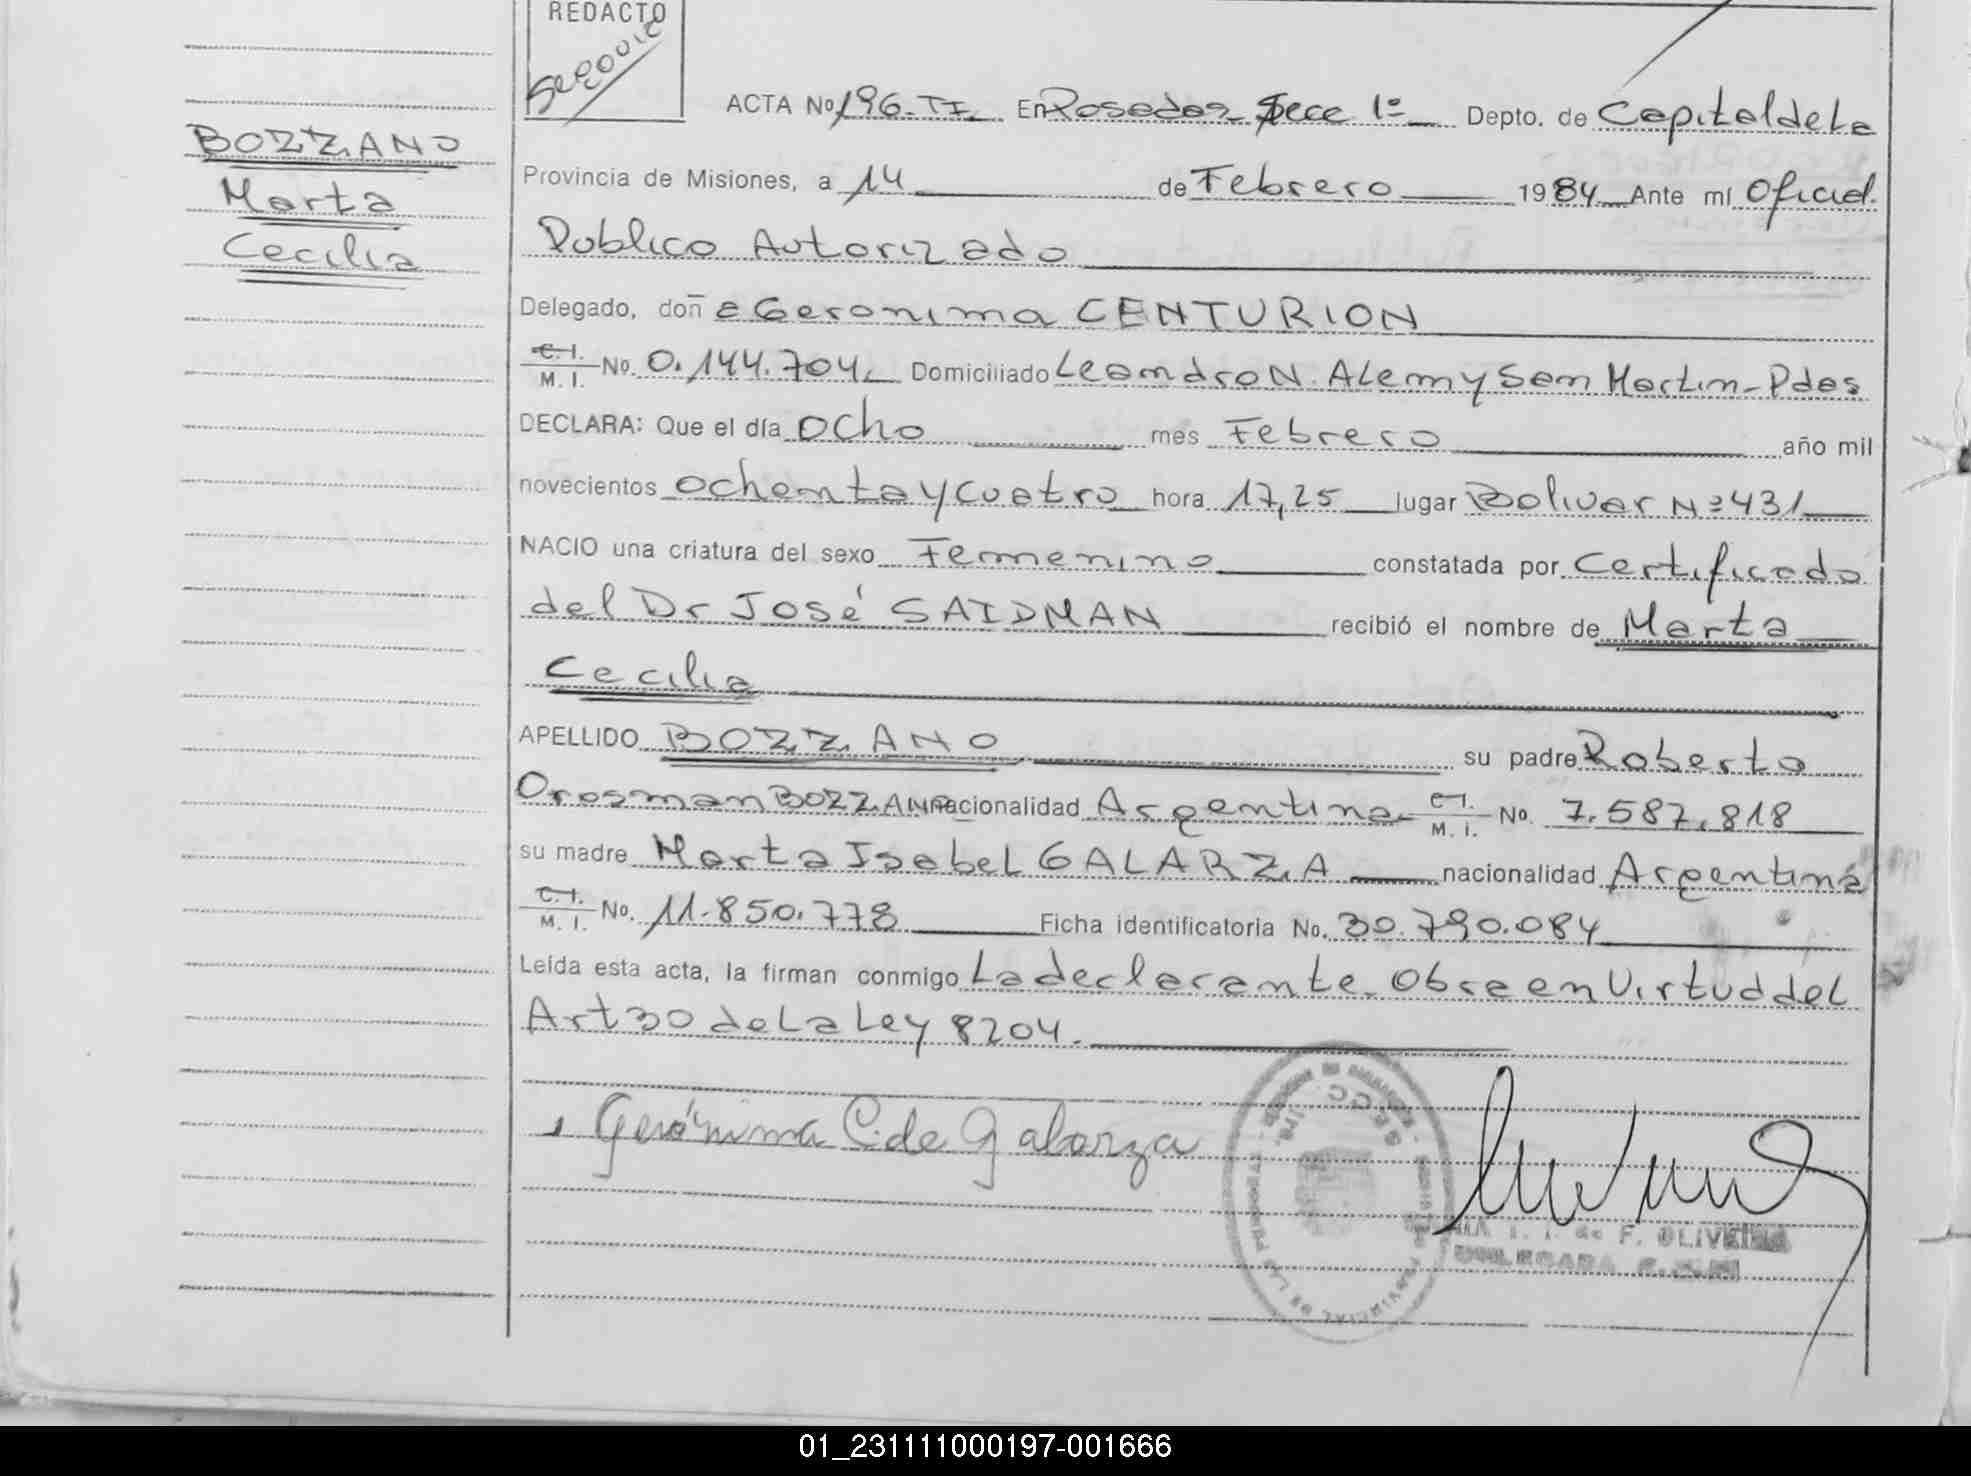 REDACTO
ACTA No 196-TI En Posadas Secc 1ª Depto. de Capital de La
BOZZANO
Marta
Cecilia
Provincia de Misiones, a 14 de Febrero 1984 Ante mí Oficial
Publico Autorizado
Delegado, doña Geronima CENTURION
C. I. / M. I. No. 0.144.704. Domiciliado Leandro N. Alem y San Martin - Pdas
DECLARA: Que el día Ocho mes Febrero año mil
novecientos Ochenta y Cuatro hora 17,25 lugar Bolivar Nº 431
NACIO una criatura del sexo Femenino constatada por Certificado
del Dr José SAIDMAN recibió el nombre de Marta
Cecilia
APELLIDO BOZZANO su padre Roberto
Orosman BOZZANO nacionalidad Argentina C. I. / M. I. No. 7.587.818
su madre Marta Isabel GALARZA nacionalidad Argentina
C. I. / M. I. No. 11.850.778 Ficha identificatoria No. 30.790.084
Leída esta acta, la firman conmigo La declarante. Obra en Virtud del
Art 30 de La Ley 8204.
Gerónima C. de Galarza
de F. OLIVEIRA
01_231111000197-001666